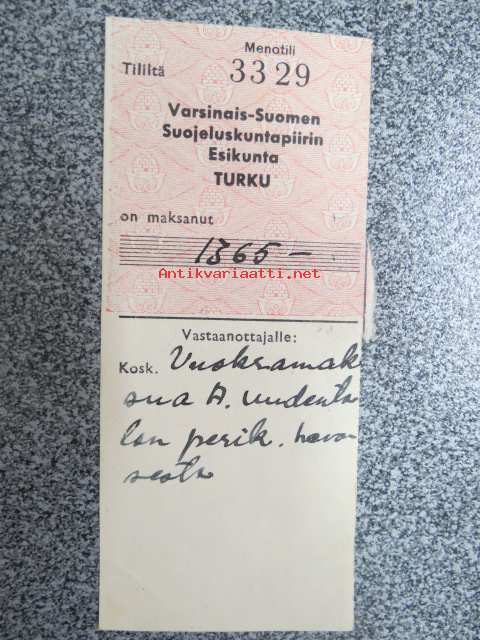 Menotili
Tililtä 3329
Varsinais-Suomen
Suojeluskuntapiirin
Esikunta
TURKU
on maksanut
1365 –
Antikvariaatti.net
Vastaanottajalle:
Kosk. Vuokramak
sua A. Uudenta
lon perik. hevo
sesta